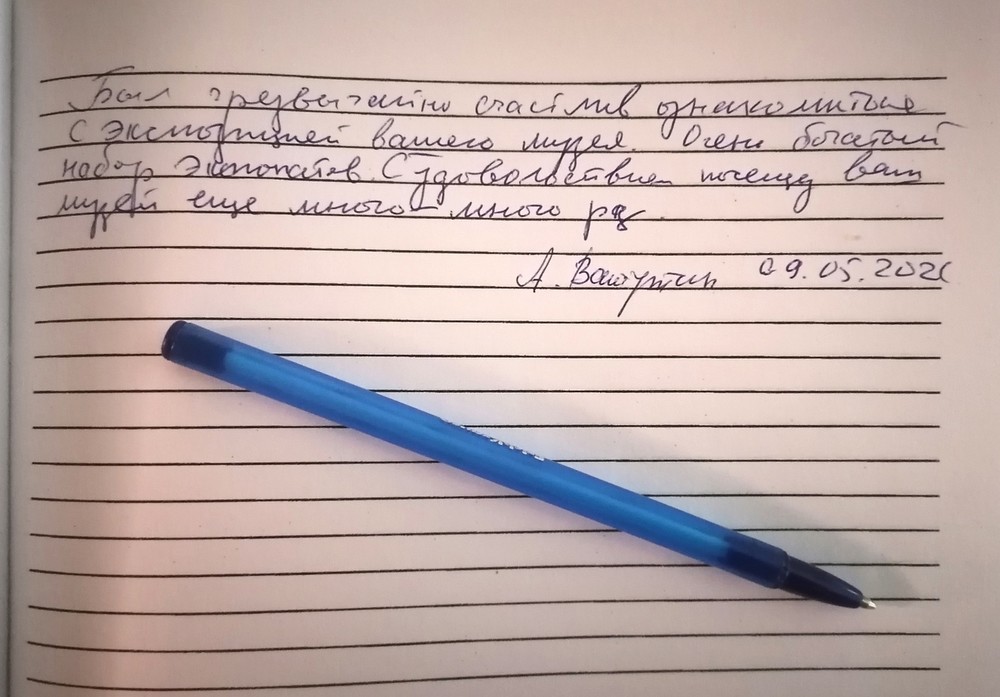 Был чрезвычайно счастлив ознакомиться
с экспозицией вашего музея. Очень богатый
набор экспонатов. С удовольствием посещу ваш
музей еще много-много раз.
А. 09.05.202